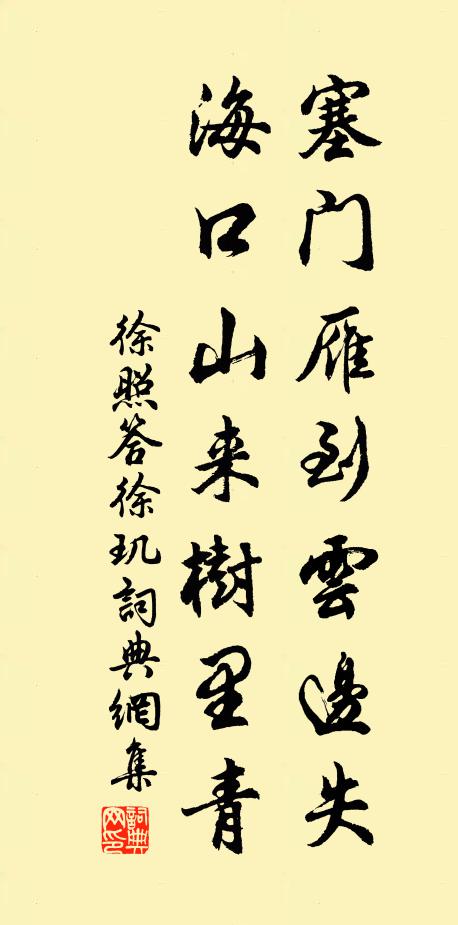 塞门雁到雲邊失
海口山来樹里青
徐照答徐玑詞典網集
詞典網印